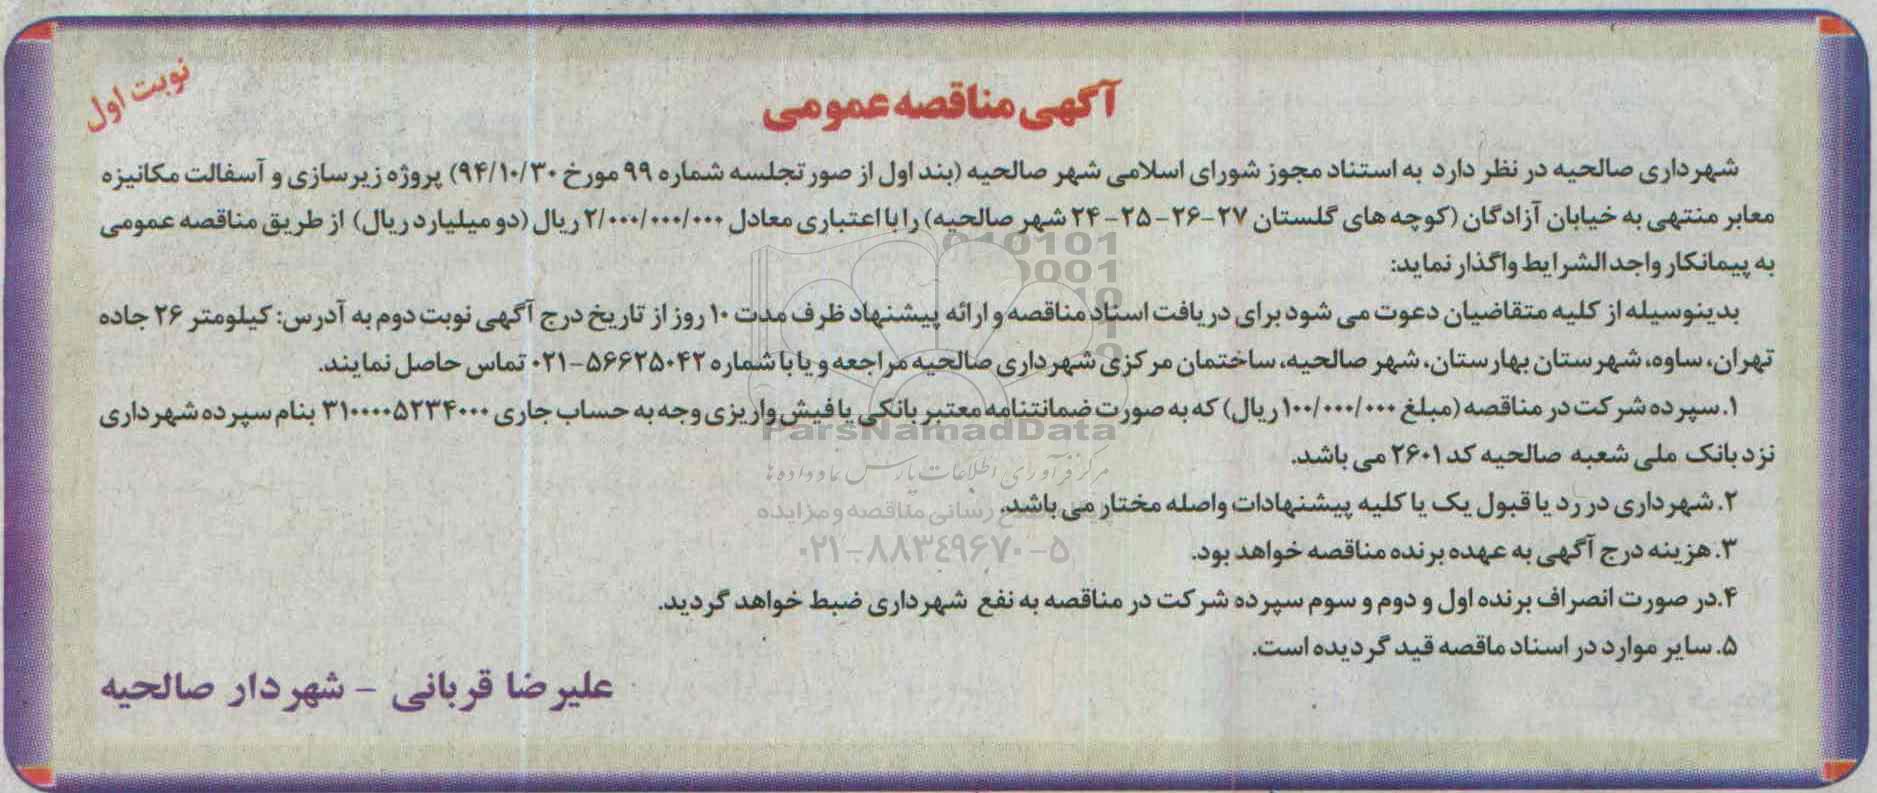 نوبت اول
آگهی مناقصه عمومی
شهرداری صالحیه در نظر دارد به استناد مجوز شورای اسلامی شهر صالحیه (بند اول از صورتجلسه شماره ۹۹ مورخ ۹۴/۱۰/۳۰) پروژه زیرسازی و آسفالت مکانیزه
معابر منتهی به خیابان آزادگان (کوچه های گلستان ۲۷-۲۶-۲۵-۲۴ شهر صالحیه) را با اعتباری معادل ۲/۰۰۰/۰۰۰/۰۰۰ ریال (دو میلیارد ریال) از طریق مناقصه عمومی
به پیمانکار واجد الشرایط واگذار نماید:
بدینوسیله از کلیه متقاضیان دعوت می شود برای دریافت اسناد مناقصه و ارائه پیشنهاد ظرف مدت ۱۰ روز از تاریخ درج آگهی نوبت دوم به آدرس: کیلومتر ۲۶ جاده
تهران، ساوه، شهرستان بهارستان، شهر صالحیه، ساختمان مرکزی شهرداری صالحیه مراجعه و یا با شماره ۵۶۶۲۵۰۴۲-۰۲۱ تماس حاصل نمایند.
۱. سپرده شرکت در مناقصه (مبلغ ۱۰۰/۰۰۰/۰۰۰ ریال) که به صورت ضمانتنامه معتبر بانکی یا فیش واریزی وجه به حساب جاری ۳۱۰۰۰۰۵۲۳۴۰۰۰ بنام سپرده شهرداری
نزد بانک ملی شعبه صالحیه کد ۲۶۰۱ می باشد.
۲. شهرداری در رد یا قبول یک یا کلیه پیشنهادات واصله مختار می باشد.
۳. هزینه درج آگهی به عهده برنده مناقصه خواهد بود.
۴. در صورت انصراف برنده اول و دوم و سوم سپرده شرکت در مناقصه به نفع شهرداری ضبط خواهد گردید.
۵. سایر موارد در اسناد ماقصه قید گردیده است.
علیرضا قربانی - شهردار صالحیه
ParsNamadData
مرکز فرآوری اطلاعات پارس نماد داده ها
رسانی مناقصه و مزایده
۰۲۱-۸۸۳۴۹۶۷۰-۵